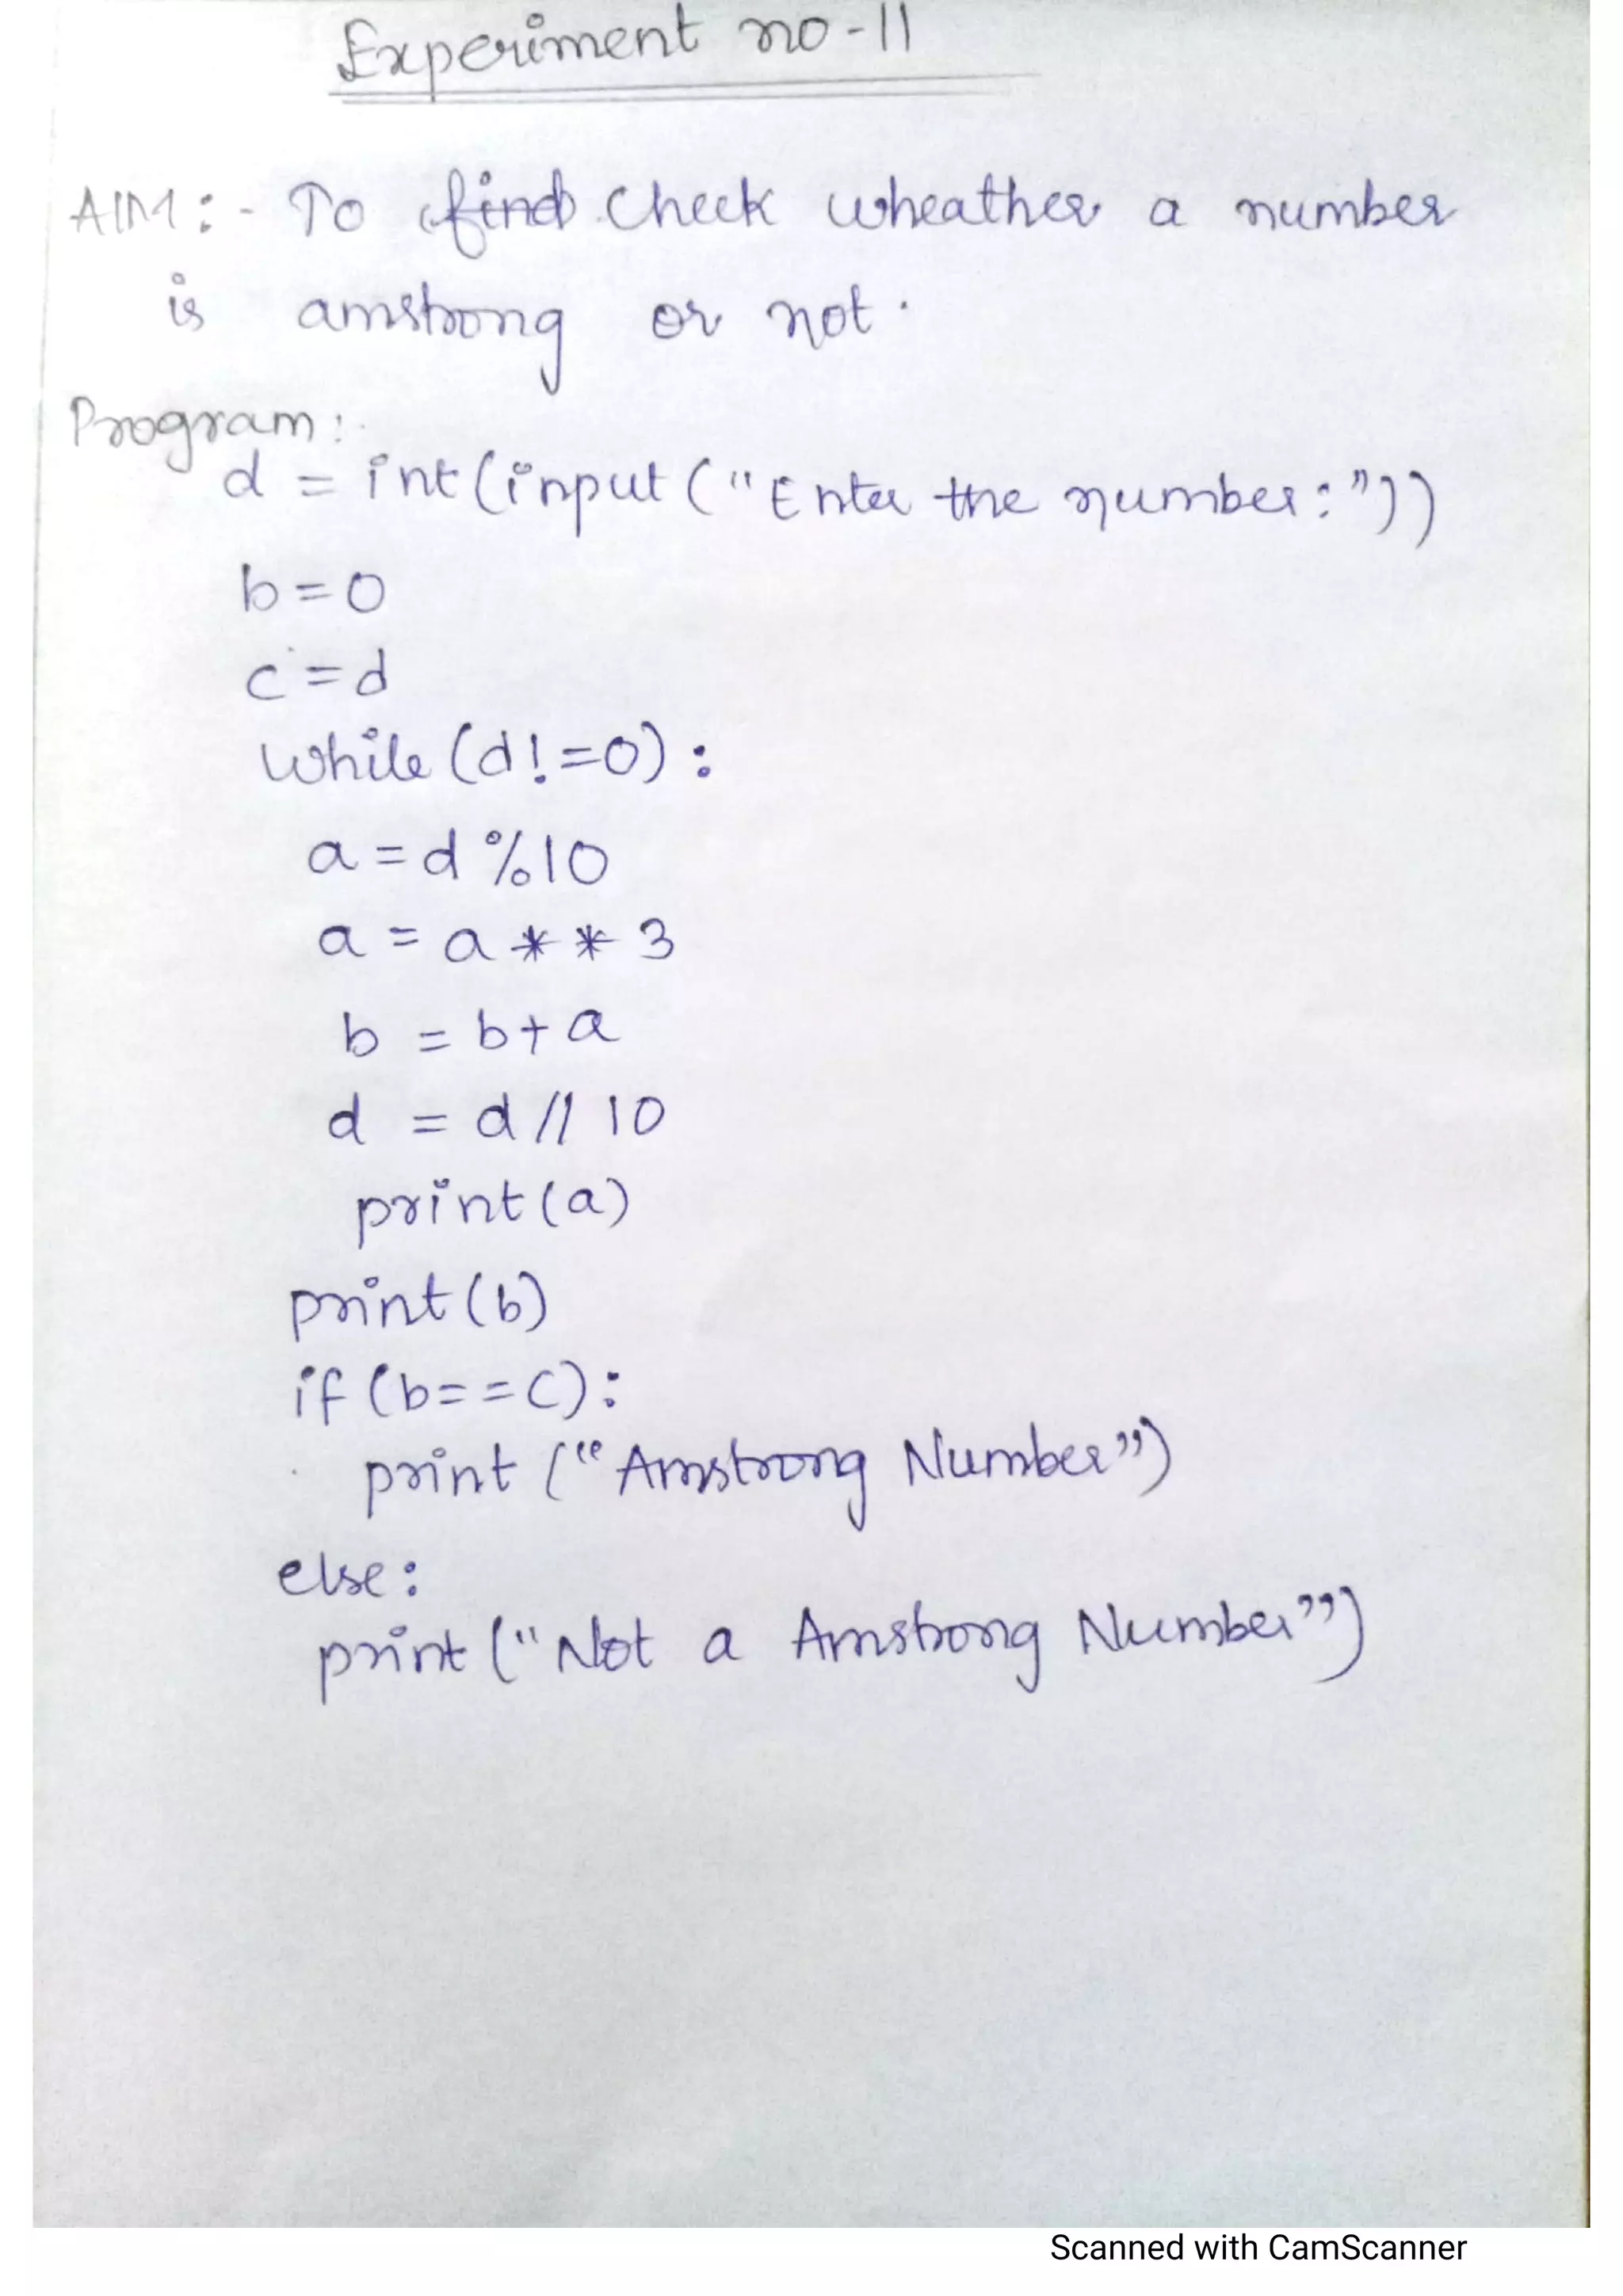 Experiment no - 11
AIM : - To find check wheather a number
is amstrong or not .
Program :
d = int(input("Enter the number:"))
b = 0
c = d
while (d != 0) :
a = d % 10
a = a ** 3
b = b + a
d = d // 10
print(a)
print(b)
if (b == c) :
print ("Amstrong Number")
else :
print ("Not a Amstrong Number")
Scanned with CamScanner